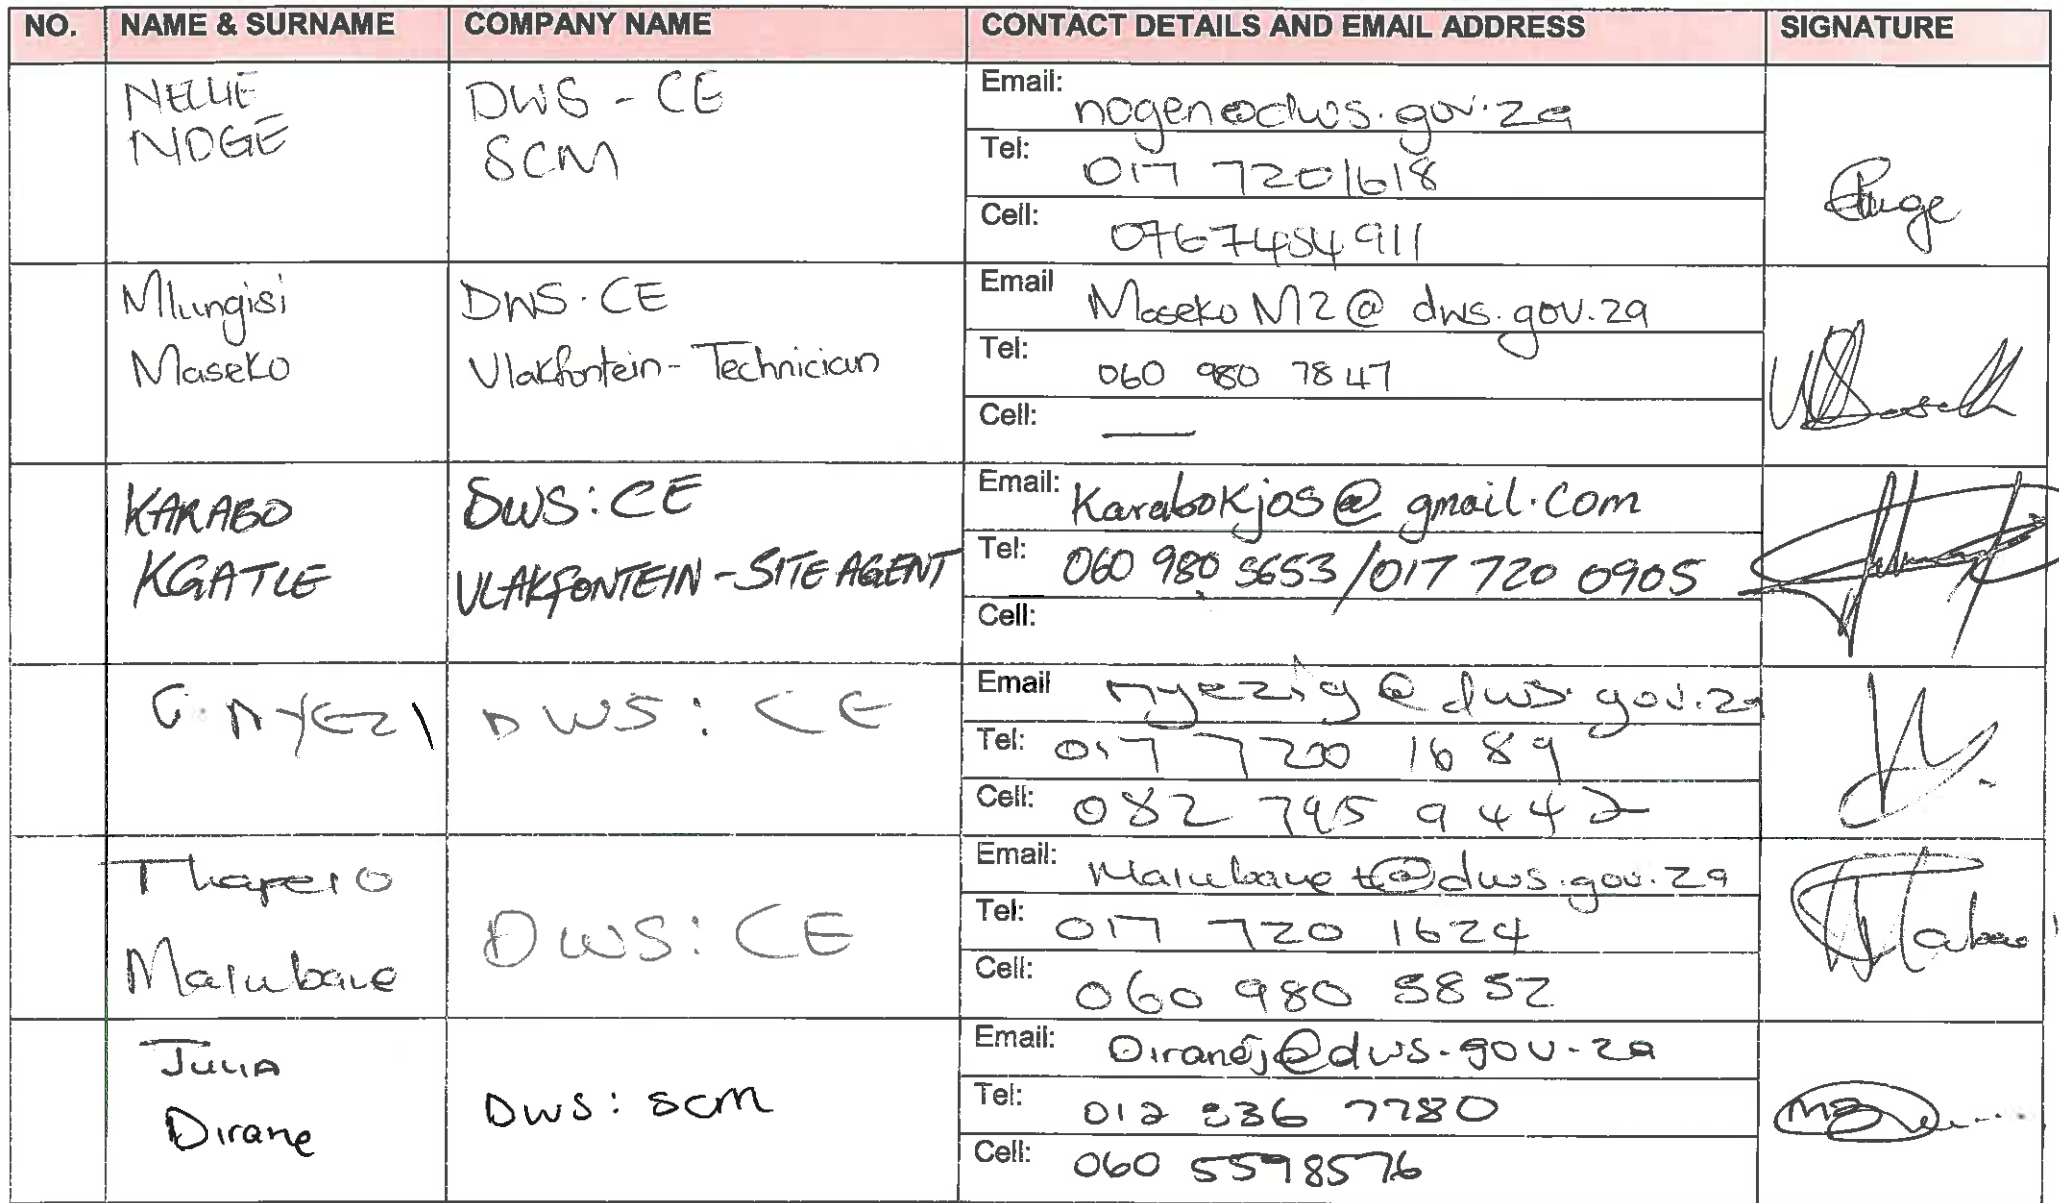 NO. NAME & SURNAME COMPANY NAME CONTACT DETAILS AND EMAIL ADDRESS SIGNATURE
NELLIE
NOGE
DWS - CE
SCM
Email: nogen@dws.gov.za
Tel: 017 7201618
Cell: 0767454911
Mlungisi
Maseko
DWS. CE
Vlakfontein - Technician
Email MasekoM2@dws.gov.za
Tel: 060 980 7847
Cell: —
KARABO
KGATLE
DWS: CE
VLAKFONTEIN - SITE AGENT
Email: Karabokjos@gmail.com
Tel: 060 980 5653 / 017 720 0905
Cell:
G. NYEZI
DWS: CE
Email nyezig@dws.gov.za
Tel: 017 720 1689
Cell: 082 795 9442
Thapelo
Malubane
DWS: CE
Email: Malubanet@dws.gov.za
Tel: 017 720 1624
Cell: 060 980 5852
Julia
Dirane
DWS: SCM
Email: Diranej@dws.gov.za
Tel: 012 336 7780
Cell: 060 5598576